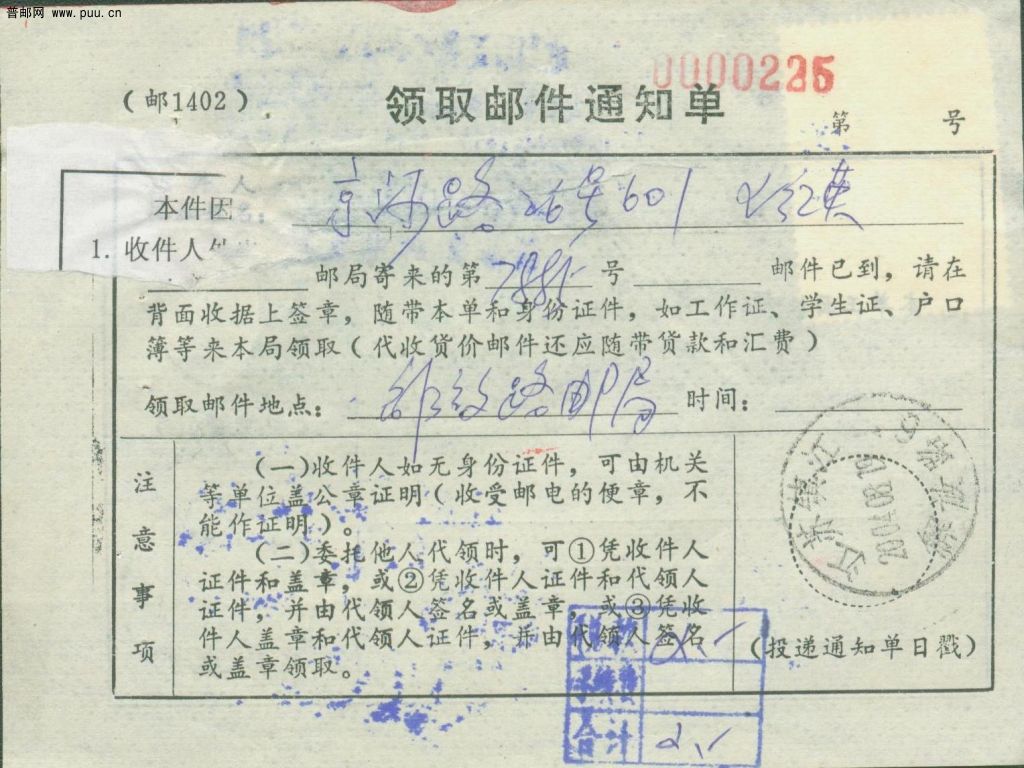 普邮网 www.puu.cn
0000225
(邮1402)
领取邮件通知单
第 号
人
本件因
京河路26号601
1. 收件人
邮局寄来的第 号 邮件已到，请在
背面收据上签章，随带本单和身份证件，如工作证、学生证、户口
簿等来本局领取(代收货价邮件还应随带货款和汇费)
领取邮件地点： 路邮局 时间：
注意事项
(一)收件人如无身份证件，可由机关
等单位盖公章证明(收受邮电的便章，不
能作证明)。
(二)委托他人代领时，可①凭收件人
证件和盖章，或②凭收件人证件和代领人
证件，并由代领人签名或盖章，或③凭收
件人盖章和代领人证件，并由代领人签名
或盖章领取。
江苏镇江
2004.08.19
(投递通知单日戳)
合计